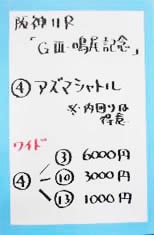 阪神11R
「GⅢ・鳴尾記念」
④アズマシャトル
※内回りは
得意
ワイド
④ ③ 6000円
⑩ 3000円
⑬ 1000円